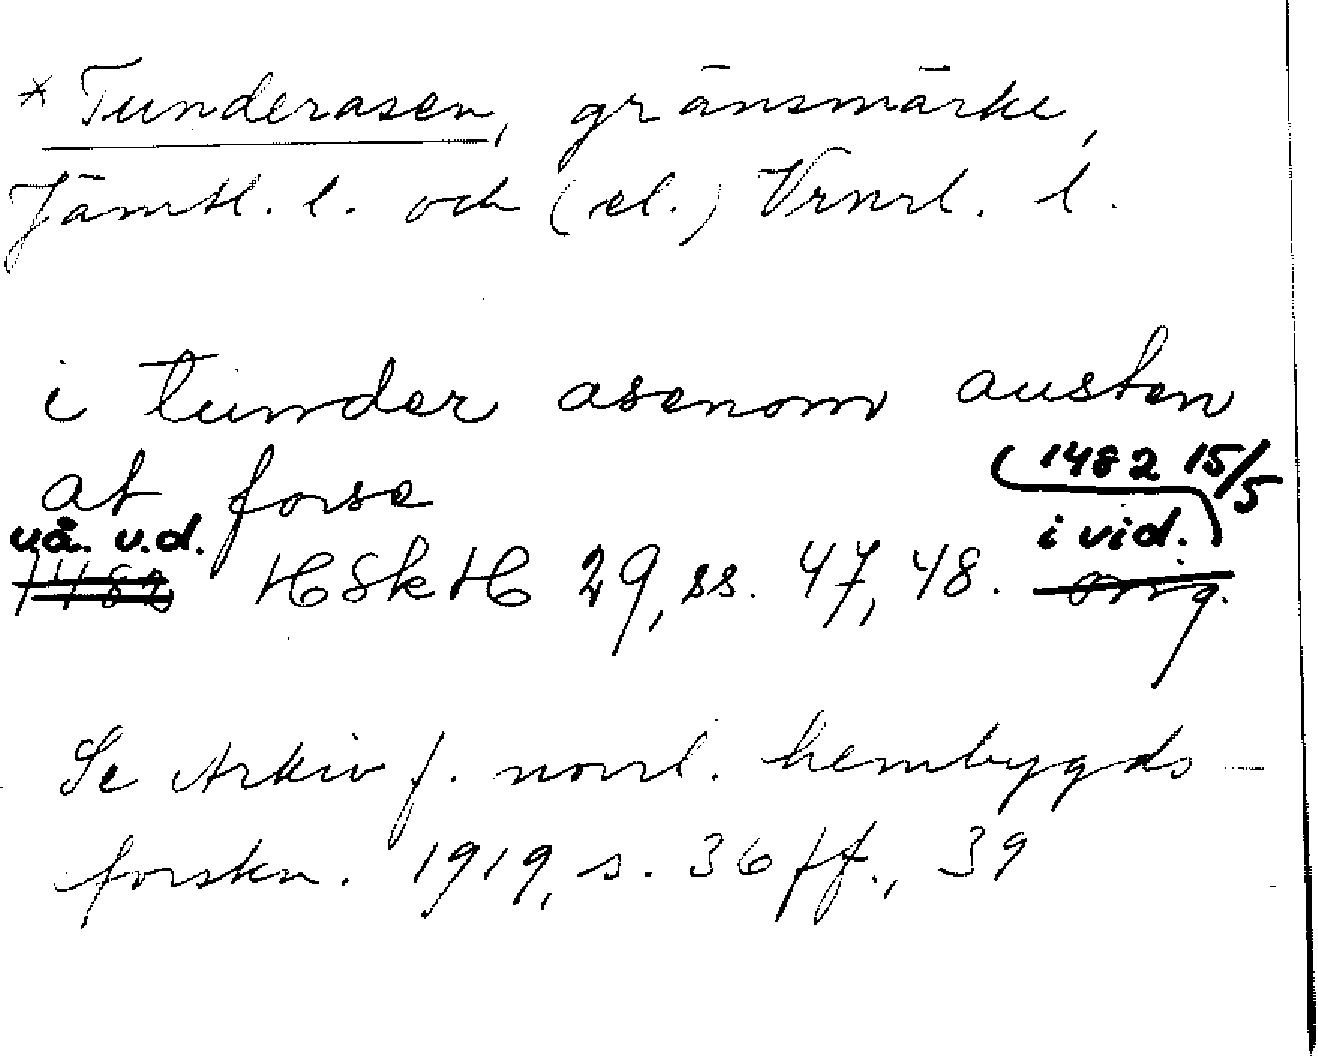 * Tunderasen, gränsmärke,
Jämtl. l. och (el.) Vrml. l.
i tunder asenom austen
at forse
(1482 15/5
uå. u.d. i vid.)
1482 HSkH 29, ss. 47, 48. orig.
Se Arkiv f. norrl. hembygds-
forskn. 1919, s. 36 ff., 39